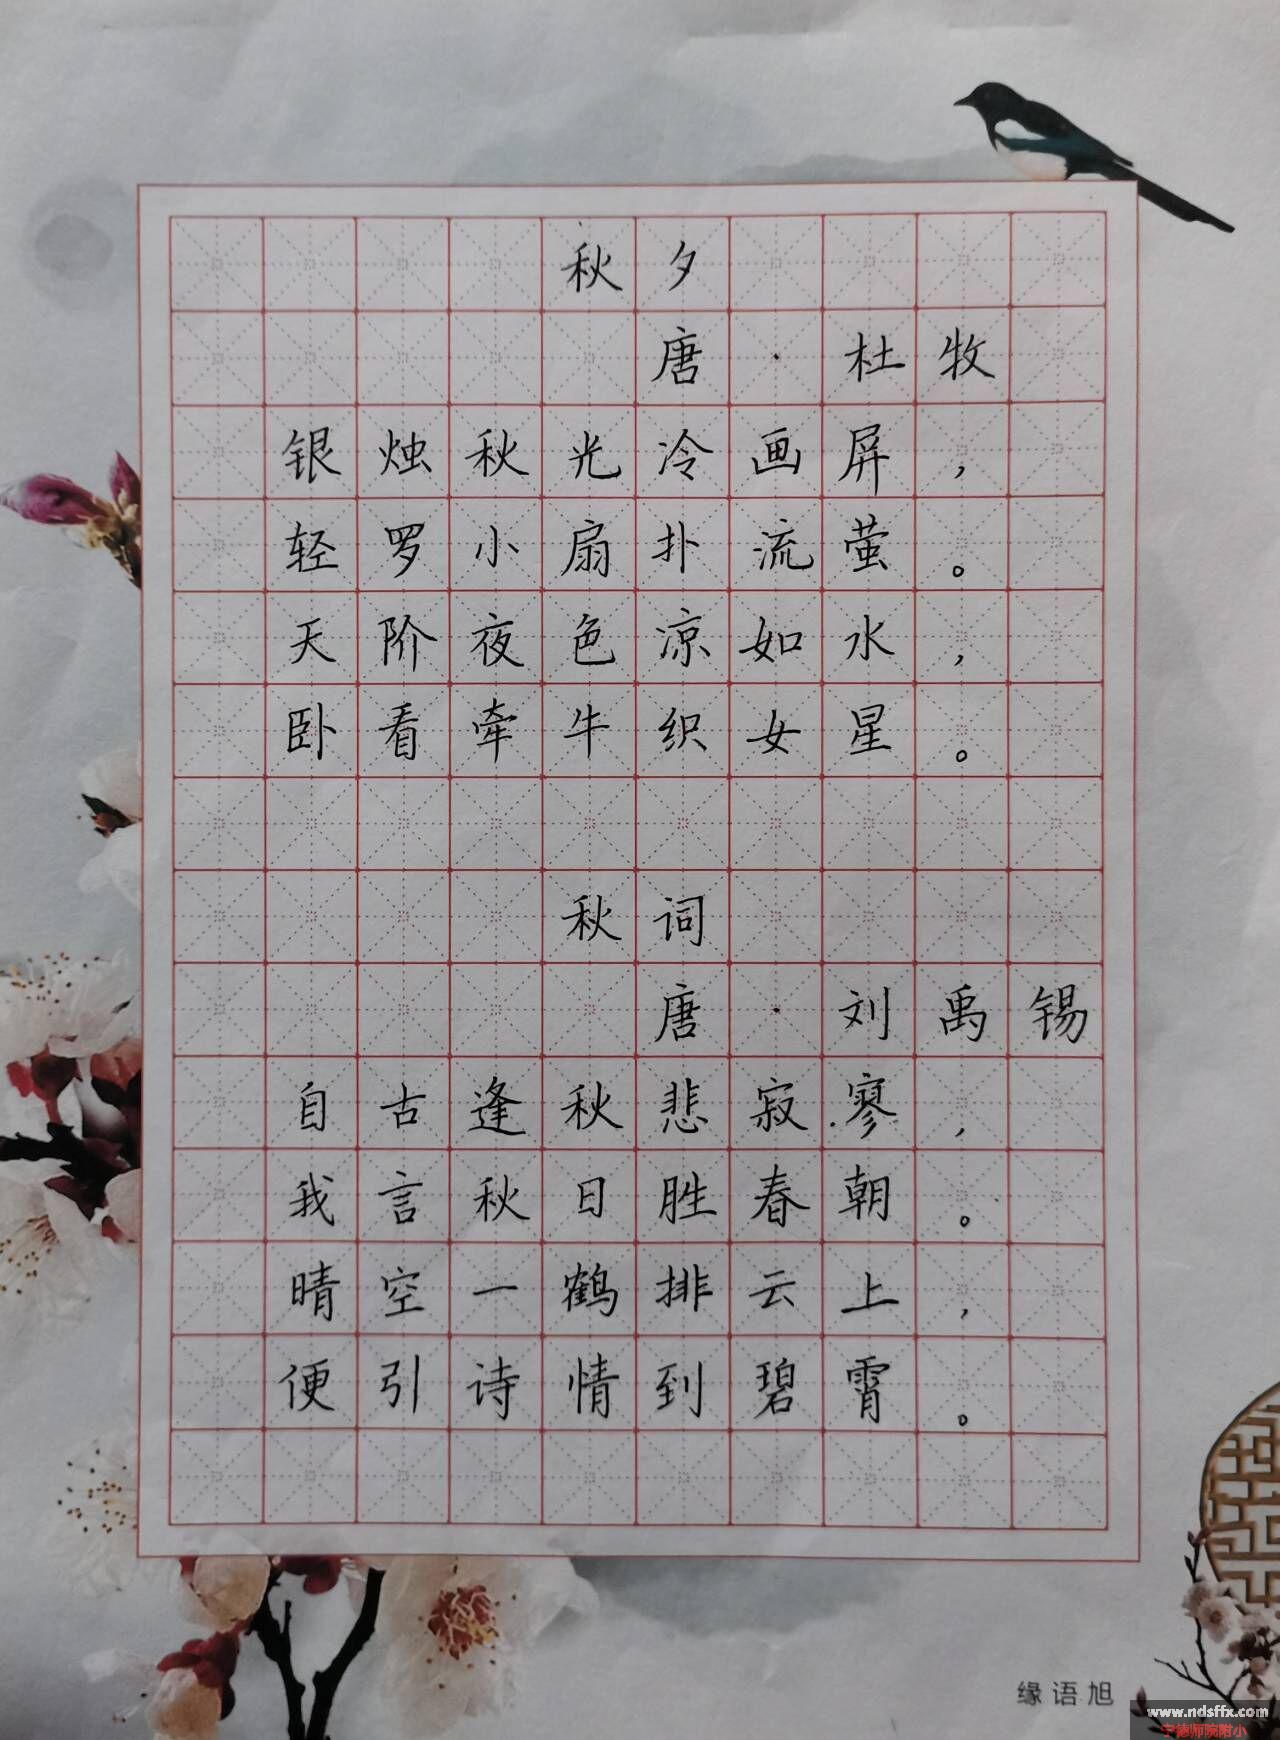 秋夕
唐·杜牧
银烛秋光冷画屏，
轻罗小扇扑流萤。
天阶夜色凉如水，
卧看牵牛织女星。
秋词
唐·刘禹锡
自古逢秋悲寂寥，
我言秋日胜春朝。
晴空一鹤排云上，
便引诗情到碧霄。
缘语旭
www.ndsffx.com
宁德师院附小